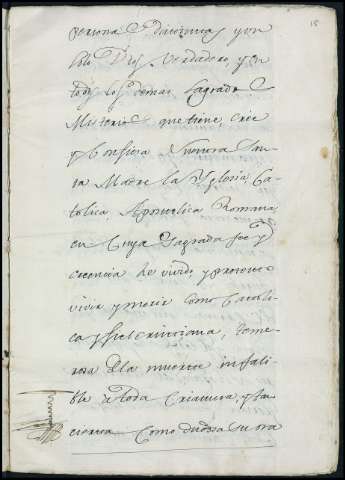 18
personas Distintas y un
solo Dios Verdadero, y en
todos los demas Sagrados
Misterios que tiene, cree
y Confiesa Nuestra San-
ta Madre la Yglesia, Ca-
tolica, Apostolica Romana,
en Cuya Sagrada fee y
creencia he vivido, y protexto
vivir y morir como Catoli-
ca y fiel Christiana, Teme-
rosa de la muerte infali-
ble a toda Criatura, y tan
cierta Como dudosa su ora